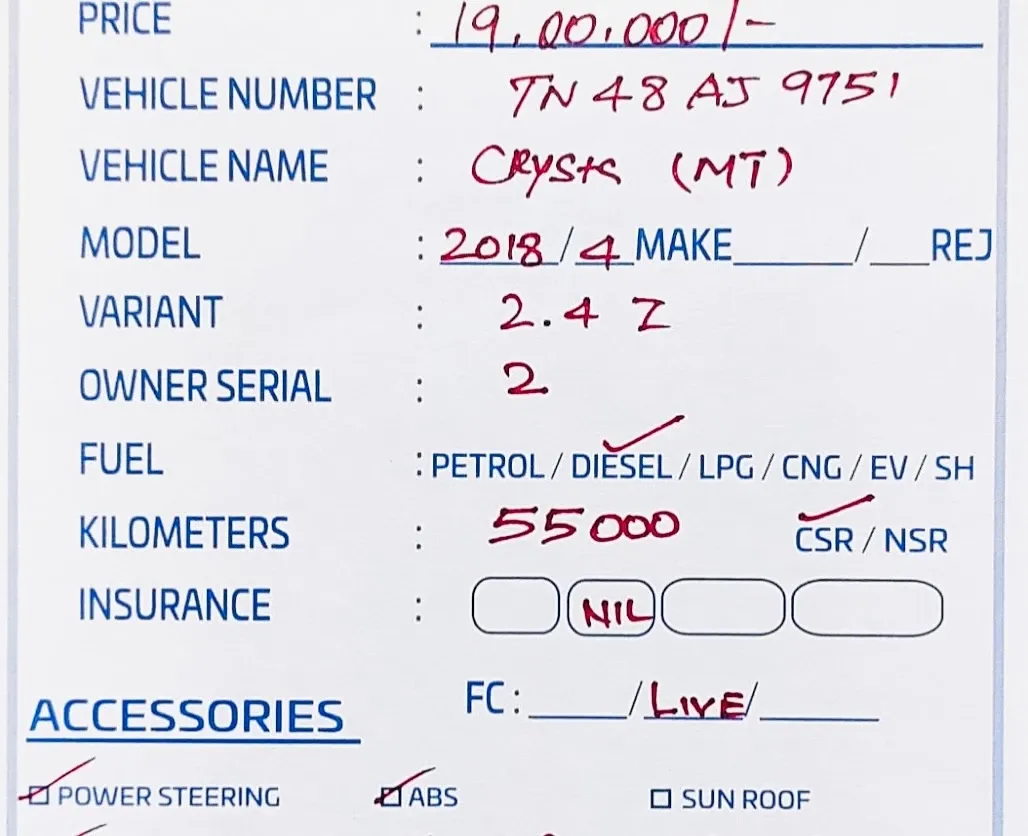 PRICE : 19,00,000/-
VEHICLE NUMBER : TN 48 AJ 9751
VEHICLE NAME : CRysta (MT)
MODEL : 2018/4 MAKE______/___REJ
VARIANT : 2.4 Z
OWNER SERIAL : 2
FUEL : PETROL / DIESEL / LPG / CNG / EV / SH
KILOMETERS : 55000 CSR / NSR
INSURANCE : NIL
FC : _____/LIVE/______
ACCESSORIES
POWER STEERING ABS SUN ROOF